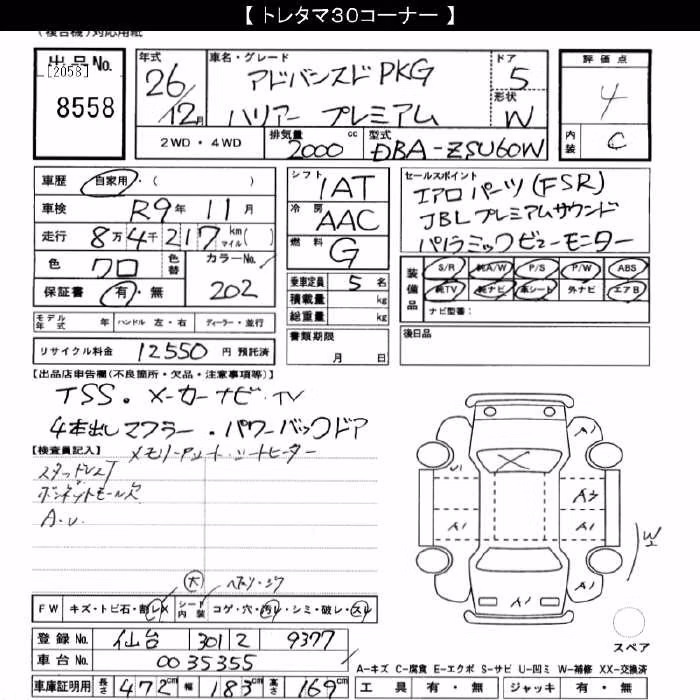 【 トレタマ30コーナー 】
(複合機)対応用紙
出品No.
[2058]
8558
年式
26/12月
車名・グレード
アドバンスドPKG
ハリアー プレミアム
ドア
5
形状
W
評価点
4
内装
C
2WD・4WD
排気量
2000 cc
型式
DBA-ZSU60W
車歴 自家用・(
車検 R9年 11月
走行 8万4千217 km マイル( )
色 クロ 色替 カラーNo.
保証書 有・無 202
モデル年式 年 ハンドル 左・右 ディーラー・並行
リサイクル料金 12550 円 預託済
シフト
IAT
冷房
AAC
燃料
G
乗車定員 5 名
積載量 kg
総重量 kg
書類期限
月 日
セールスポイント
エアロパーツ(FSR)
JBLプレミアムサウンド
パノラミックビューモニター
装備品
S/R 純A/W P/S P/W ABS
純TV 純ナビ 革シート 外ナビ エアB
ナビ型番:
後日品
【出品店申告欄(不良箇所・欠品・注意事項等)】
TSS. メーカーナビ・TV
4本出しマフラー・パワーバックドア
【検査員記入】
メモリーアシート・シートヒーター
ボンネットモール欠
A.U.
大
FW キズ・トビ石・割レ× シート内装 コゲ・穴・汚レ・シミ・破レ・スレ
登録No. 仙台 301 2 9377
車台No. 0035355
車庫証明用 長さ 472cm 幅 183cm 高さ 169cm
X
A1
U1
A3
A1
A1
A1
A1
W2
スペア
A-キズ C-腐食 E-エクボ S-サビ U-凹ミ W-補修 XX-交換済
工具 有・無 ジャッキ 有・無